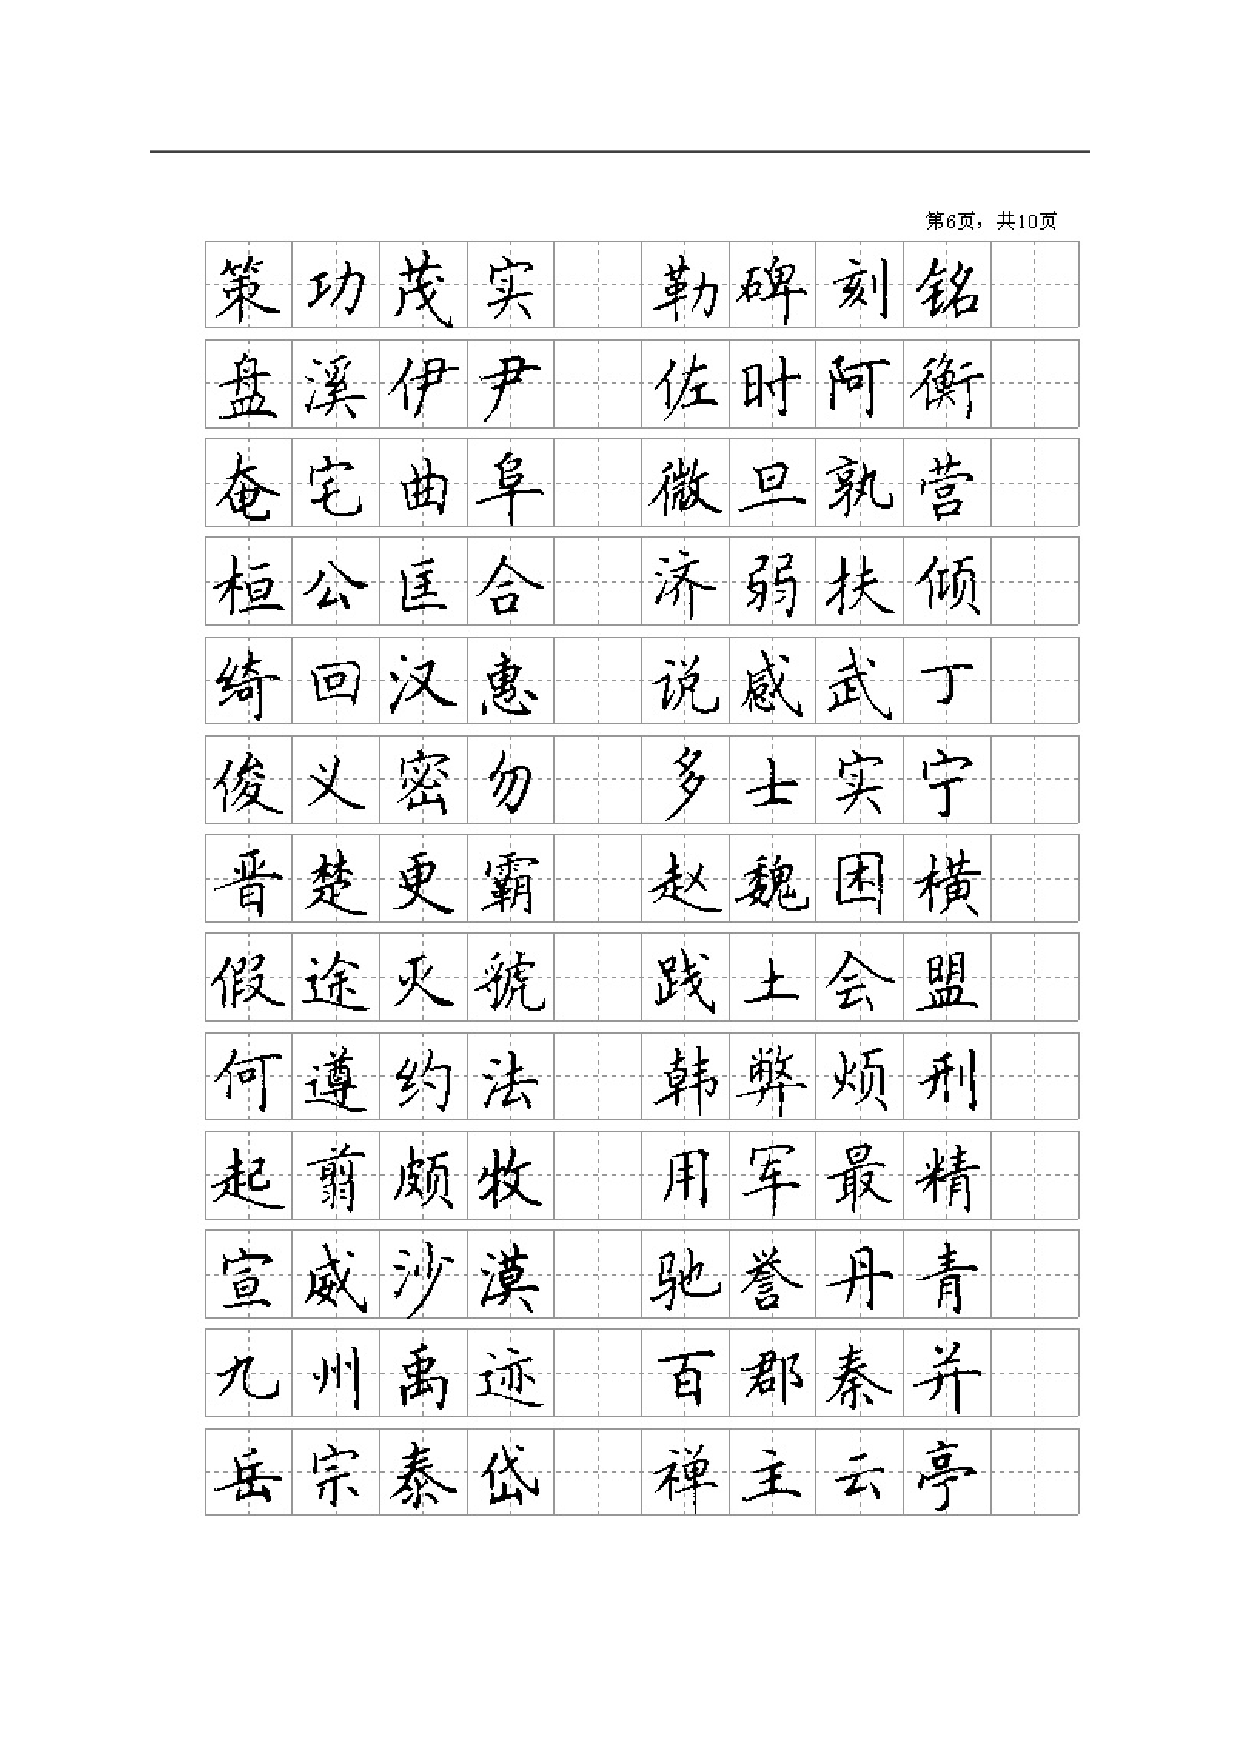 第6页，共10页
策功茂实 勒碑刻铭
盘溪伊尹 佐时阿衡
奄宅曲阜 微旦孰营
桓公匡合 济弱扶倾
绮回汉惠 说感武丁
俊义密勿 多士实宁
晋楚更霸 赵魏困横
假途灭虢 践土会盟
何遵约法 韩弊烦刑
起翦颇牧 用军最精
宣威沙漠 驰誉丹青
九州禹迹 百郡秦并
岳宗泰岱 禅主云亭